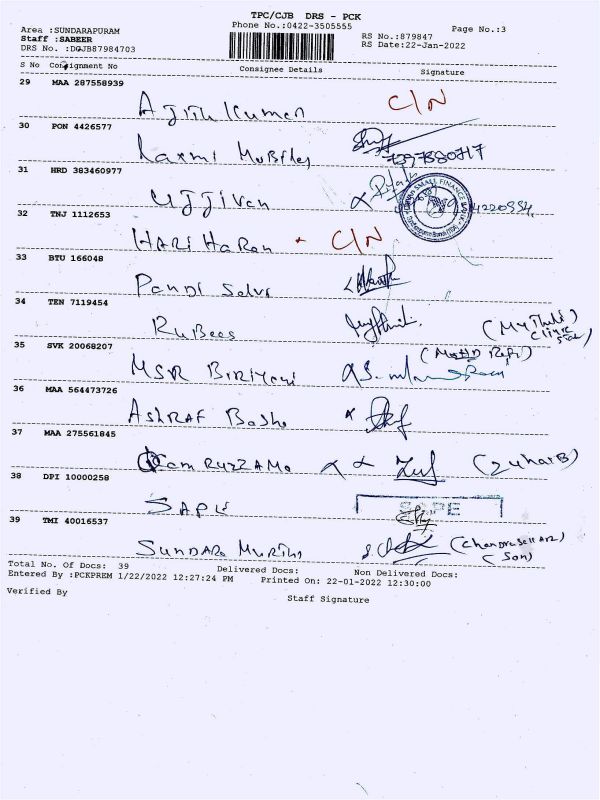 TPC/CJB DRS - PCK
Area :SUNDARAPURAM Phone No.:0422-3505555 Page No.:3
Staff :SABEER RS No.:879847
DRS No. :DGJB87984703 RS Date:22-Jan-2022
S No Consignment No Consignee Details Signature
29 MAA 287558939
Ajith Kumar C/N
30 PON 4426577
Laxmi Mobiles 7397880717
31 HRD 383460977
Ujjivan SMALL FINANCE
32 TNJ 1112653
HARI HaRan C/N
33 BTU 166048
Pandi Selvi
34 TEN 7119454
RuBees
35 SVK 20068207
MSR BIRIYani
36 MAA 564473726
AShRAF BaSha
37 MAA 275561845
QamRuzzAMa (ZuhaiB)
38 DPI 10000258
SAPE SAPE
39 TMI 40016537
SUNDARa MuRthy (ChandraseKAR)
(Son)
Total No. Of Docs: 39 Delivered Docs: Non Delivered Docs:
Entered By :PCKPREM 1/22/2022 12:27:24 PM Printed On: 22-01-2022 12:30:00
Verified By Staff Signature